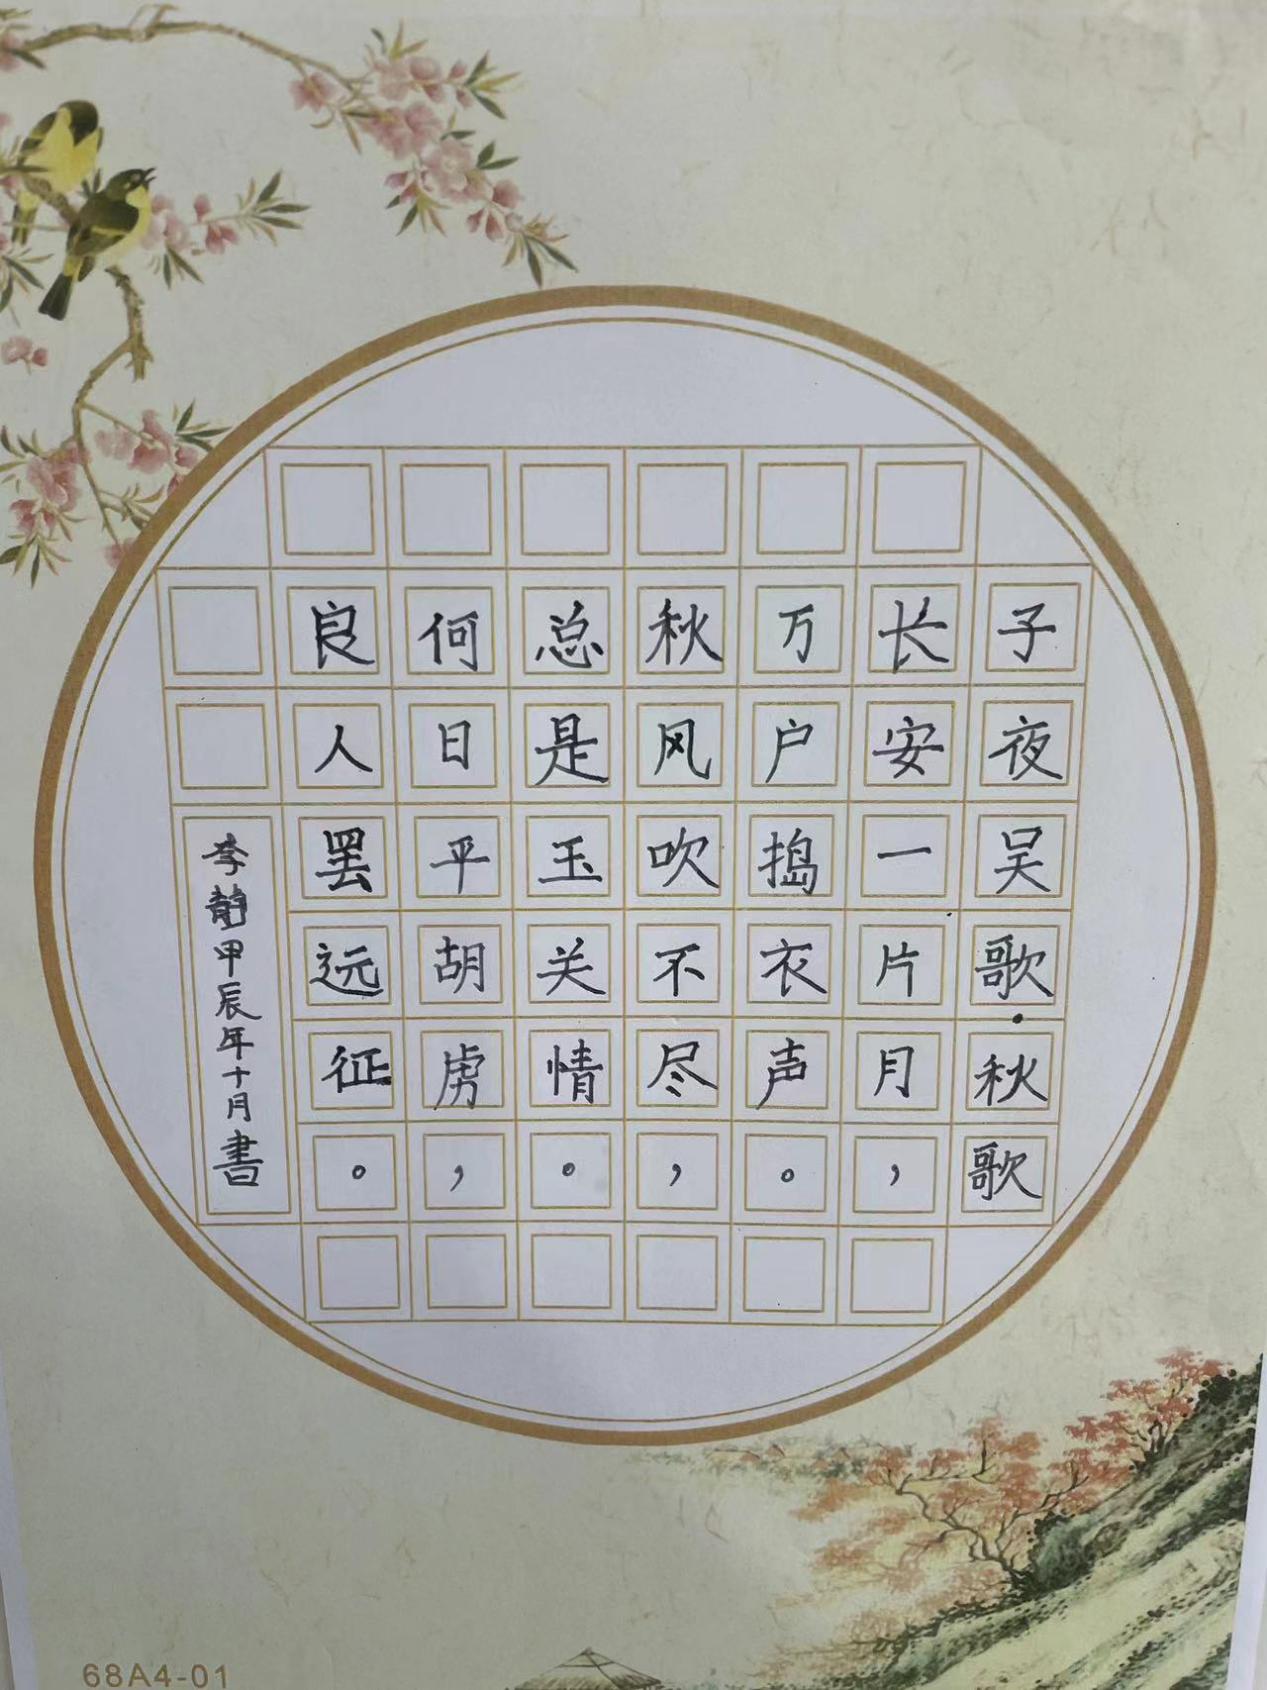 子夜吴歌·秋歌
长安一片月，
万户捣衣声。
秋风吹不尽，
总是玉关情。
何日平胡虏，
良人罢远征。
李静甲辰年十月書
68A4-01